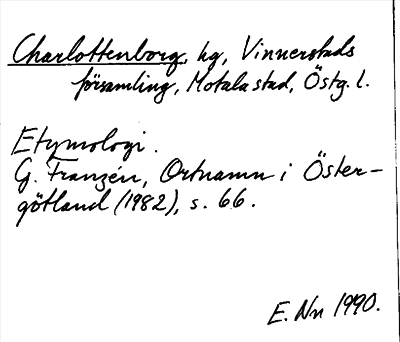 Charlottenborg, hg, Vinnerstads
församling, Motala stad, Östg. l.
Etymologi.
G. Franzén, Ortnamn i Öster-
götland (1982), s. 66.
E. Nn 1990.